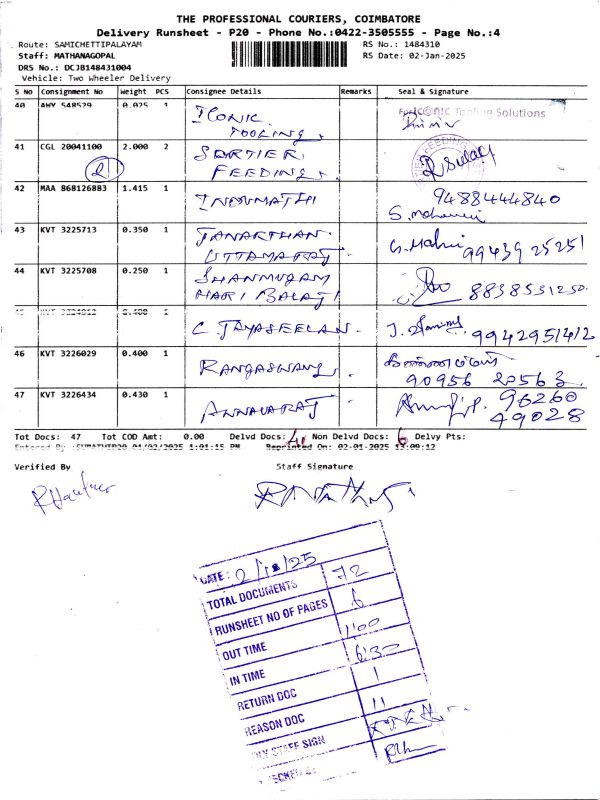 THE PROFESSIONAL COURIERS, COIMBATORE
Delivery Runsheet - P20 - Phone No.:0422-3505555 - Page No.:4
Route: SAMICHETTIPALAYAM RS No.: 1484310
Staff: MATHANAGOPAL RS Date: 02-Jan-2025
DRS No.: DCJB148431004
Vehicle: Two Wheeler Delivery
S No Consignment No Weight PCS Consignee Details Remarks Seal & Signature
40 AWY 548529 0.025 1 ICONIC TOOLING. For ICONIC Tooling Solutions
41 CGL 20041100 2.000 2 SORTIER FEEDING.
2
42 MAA 868126883 1.415 1 INDUMATHI 9488444840
43 KVT 3225713 0.350 1 JANARTHAN. UTTAMARAJ 99439 25251
44 KVT 3225708 0.250 1 SHANMUGAM HARI BALAJI 8838531250.
45 1 C JAYASEELAN. 9942951412
46 KVT 3226029 0.400 1 RANGASWAMY. 90956 20563
47 KVT 3226434 0.430 1 ANNAVARAJ 96260 49028
Tot Docs: 47 Tot COD Amt: 0.00 Delvd Docs: 41 Non Delvd Docs: 6 Delvy Pts:
Reprinted On: 02-01-2025 13:09:12
Verified By Staff Signature
DATE: 2/1/25
TOTAL DOCUMENTS 72
RUNSHEET NO OF PAGES 6
OUT TIME 1:00
IN TIME 6:30
RETURN DOC 1
REASON DOC 11
STAFF SIGN